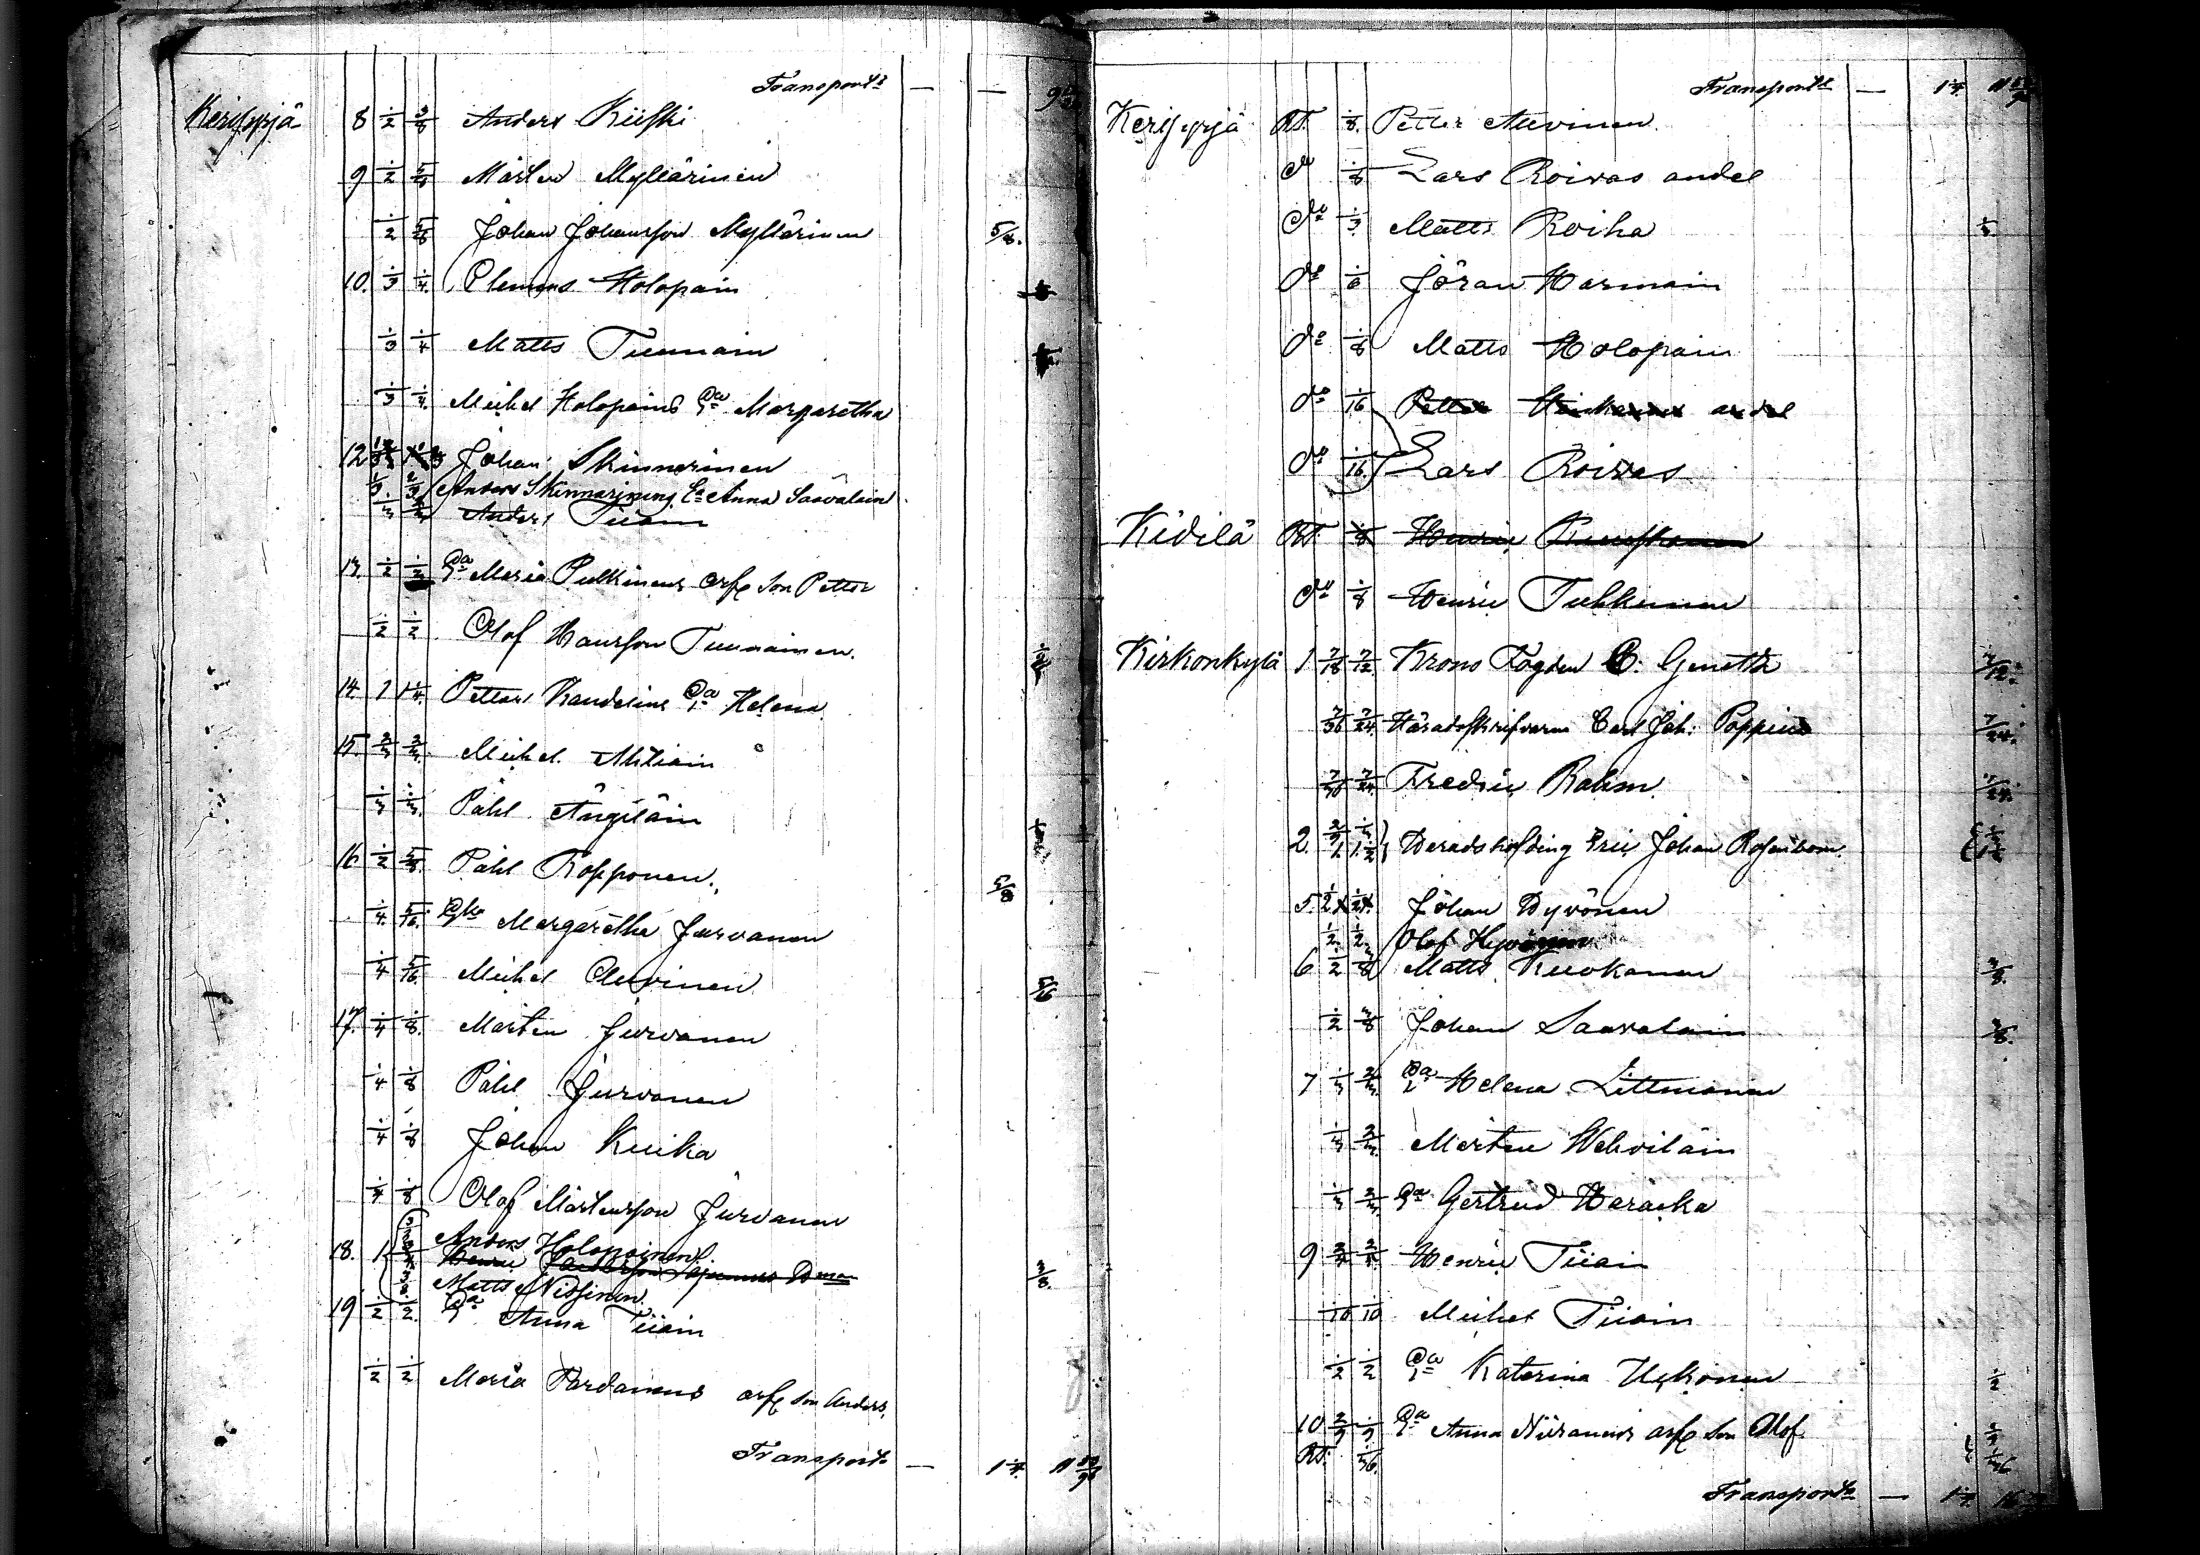 Transport —
Kerisyrjä 8 1/2 5/8 Anders Kiiski
9 1/2 5/8 Mårten Myllärinen
1/2 5/8 Johan Johansson Myllärinen 5/8.
10. 1/3 1/4. Clemens Holopain
1/3 1/4 Matts Tiumain
1/3 1/4. Michel Holopains Margaretha
12 Johan Skinnarinen
Anders Skinnarinens Anna Saavalain
Anders Tiiain
13. 1/2 1/2 Maria Pulkinens son Petter
1/2 1/2. Olof Hansson Tiumainen.
14. 1 1 1/4. Petter Kandelins Helena
15. 2/3 2/3. Michel Ahtiain
1/3 1/3. Påhl Ängiläin
16 1/2 5/8. Påhl Kopponen. 5/8
1/4. 5/16. Margaretha Jurvanen
1/4 5/16. Michel Auvinen 5/16
17. 1/4 1/8. Mårten Jurvanen
1/4 1/8 Påhl Jurvanen
1/4 1/8 Johan Kuika
1/4 1/8 Olof Mårtensson Jurvanen
Anders Holopainen
18. 1 Henric
Matts Nissinen. 3/8.
19 1/2 1/2. Anna Tiiain
1/2 1/2 Maria Pardanens son Anders.
Transport — 1 1/4. 11
Transport — 1 1/4. 11
Kerisyrjä RT. 1/8. Petter Auvinen.
do 1/8 Lars Roivas andel
do 1/3. Matts Roiha 1/3.
do 1/6 Jöran Harmain
do 1/8 Matts Holopain
do 1/16 Petter andel
do 1/16 Lars Roivas
Kidilä RT. 1/8 Henric
do 1/8 Henric Tuhkunen
Kirkonkylä 1 7/18 7/12. Krono Fogden C. Geneth 7/12.
7/36 7/24. Häradsskrifvaren Carl Joh: Poppius 7/24.
7/36 7/24. Fredric Rahm. 7/24.
2. Häradshöfding Eric Johan Rosenbom.
5. Johan Hyvönen
1/2 1/2 Olof Hyvönen
6 1/2 3/8 Matts Kuokanen 3/8.
1/2 3/8 Johan Saavalain 3/8.
7 1/3 2/3. Helena Littmanen
1/3 2/3. Mårten Wehviläin
1/3 2/3. Gertrud Haracka
9 2/5 2/5. Henric Tiiain
1/10 1/10 Michel Tiiain
1/2 1/2 Katarina Uskonen 1/2
10 Anna Niiranens son Olof.
RT. 1/36.
Transport — 1 1/4.